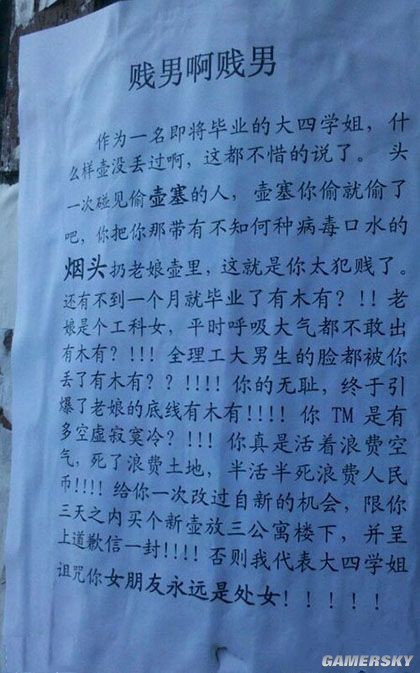 贱男啊贱男
作为一名即将毕业的大四学姐，什
么样壶没丢过啊，这都不惜的说了。头
一次碰见偷壶塞的人，壶塞你偷就偷了
吧，你把你那带有不知何种病毒口水的
烟头扔老娘壶里，这就是你太犯贱了。
还有不到一个月就毕业了有木有？！！老
娘是个工科女，平时呼吸大气都不敢出
有木有？！！！全理工大男生的脸都被你
丢了有木有？？！！！！你的无耻，终于引
爆了老娘的底线有木有！！！！你 TM 是有
多空虚寂寞冷？！！！你真是活着浪费空
气，死了浪费土地，半活半死浪费人民
币！！！！给你一次改过自新的机会，限你
三天之内买个新壶放三公寓楼下，并呈
上道歉信一封！！！！否则我代表大四学姐
诅咒你女朋友永远是处女！！！！！
GAMERSKY